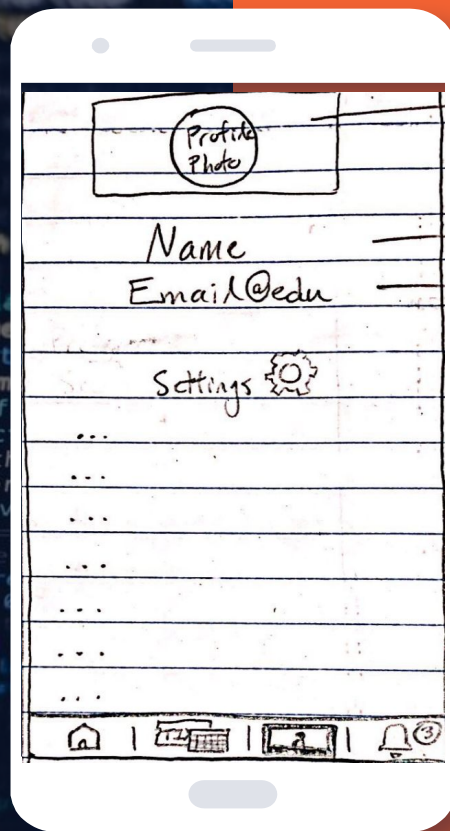 Profile
Photo
Name
Email@edu
Settings
...
...
...
...
...
...
...
3